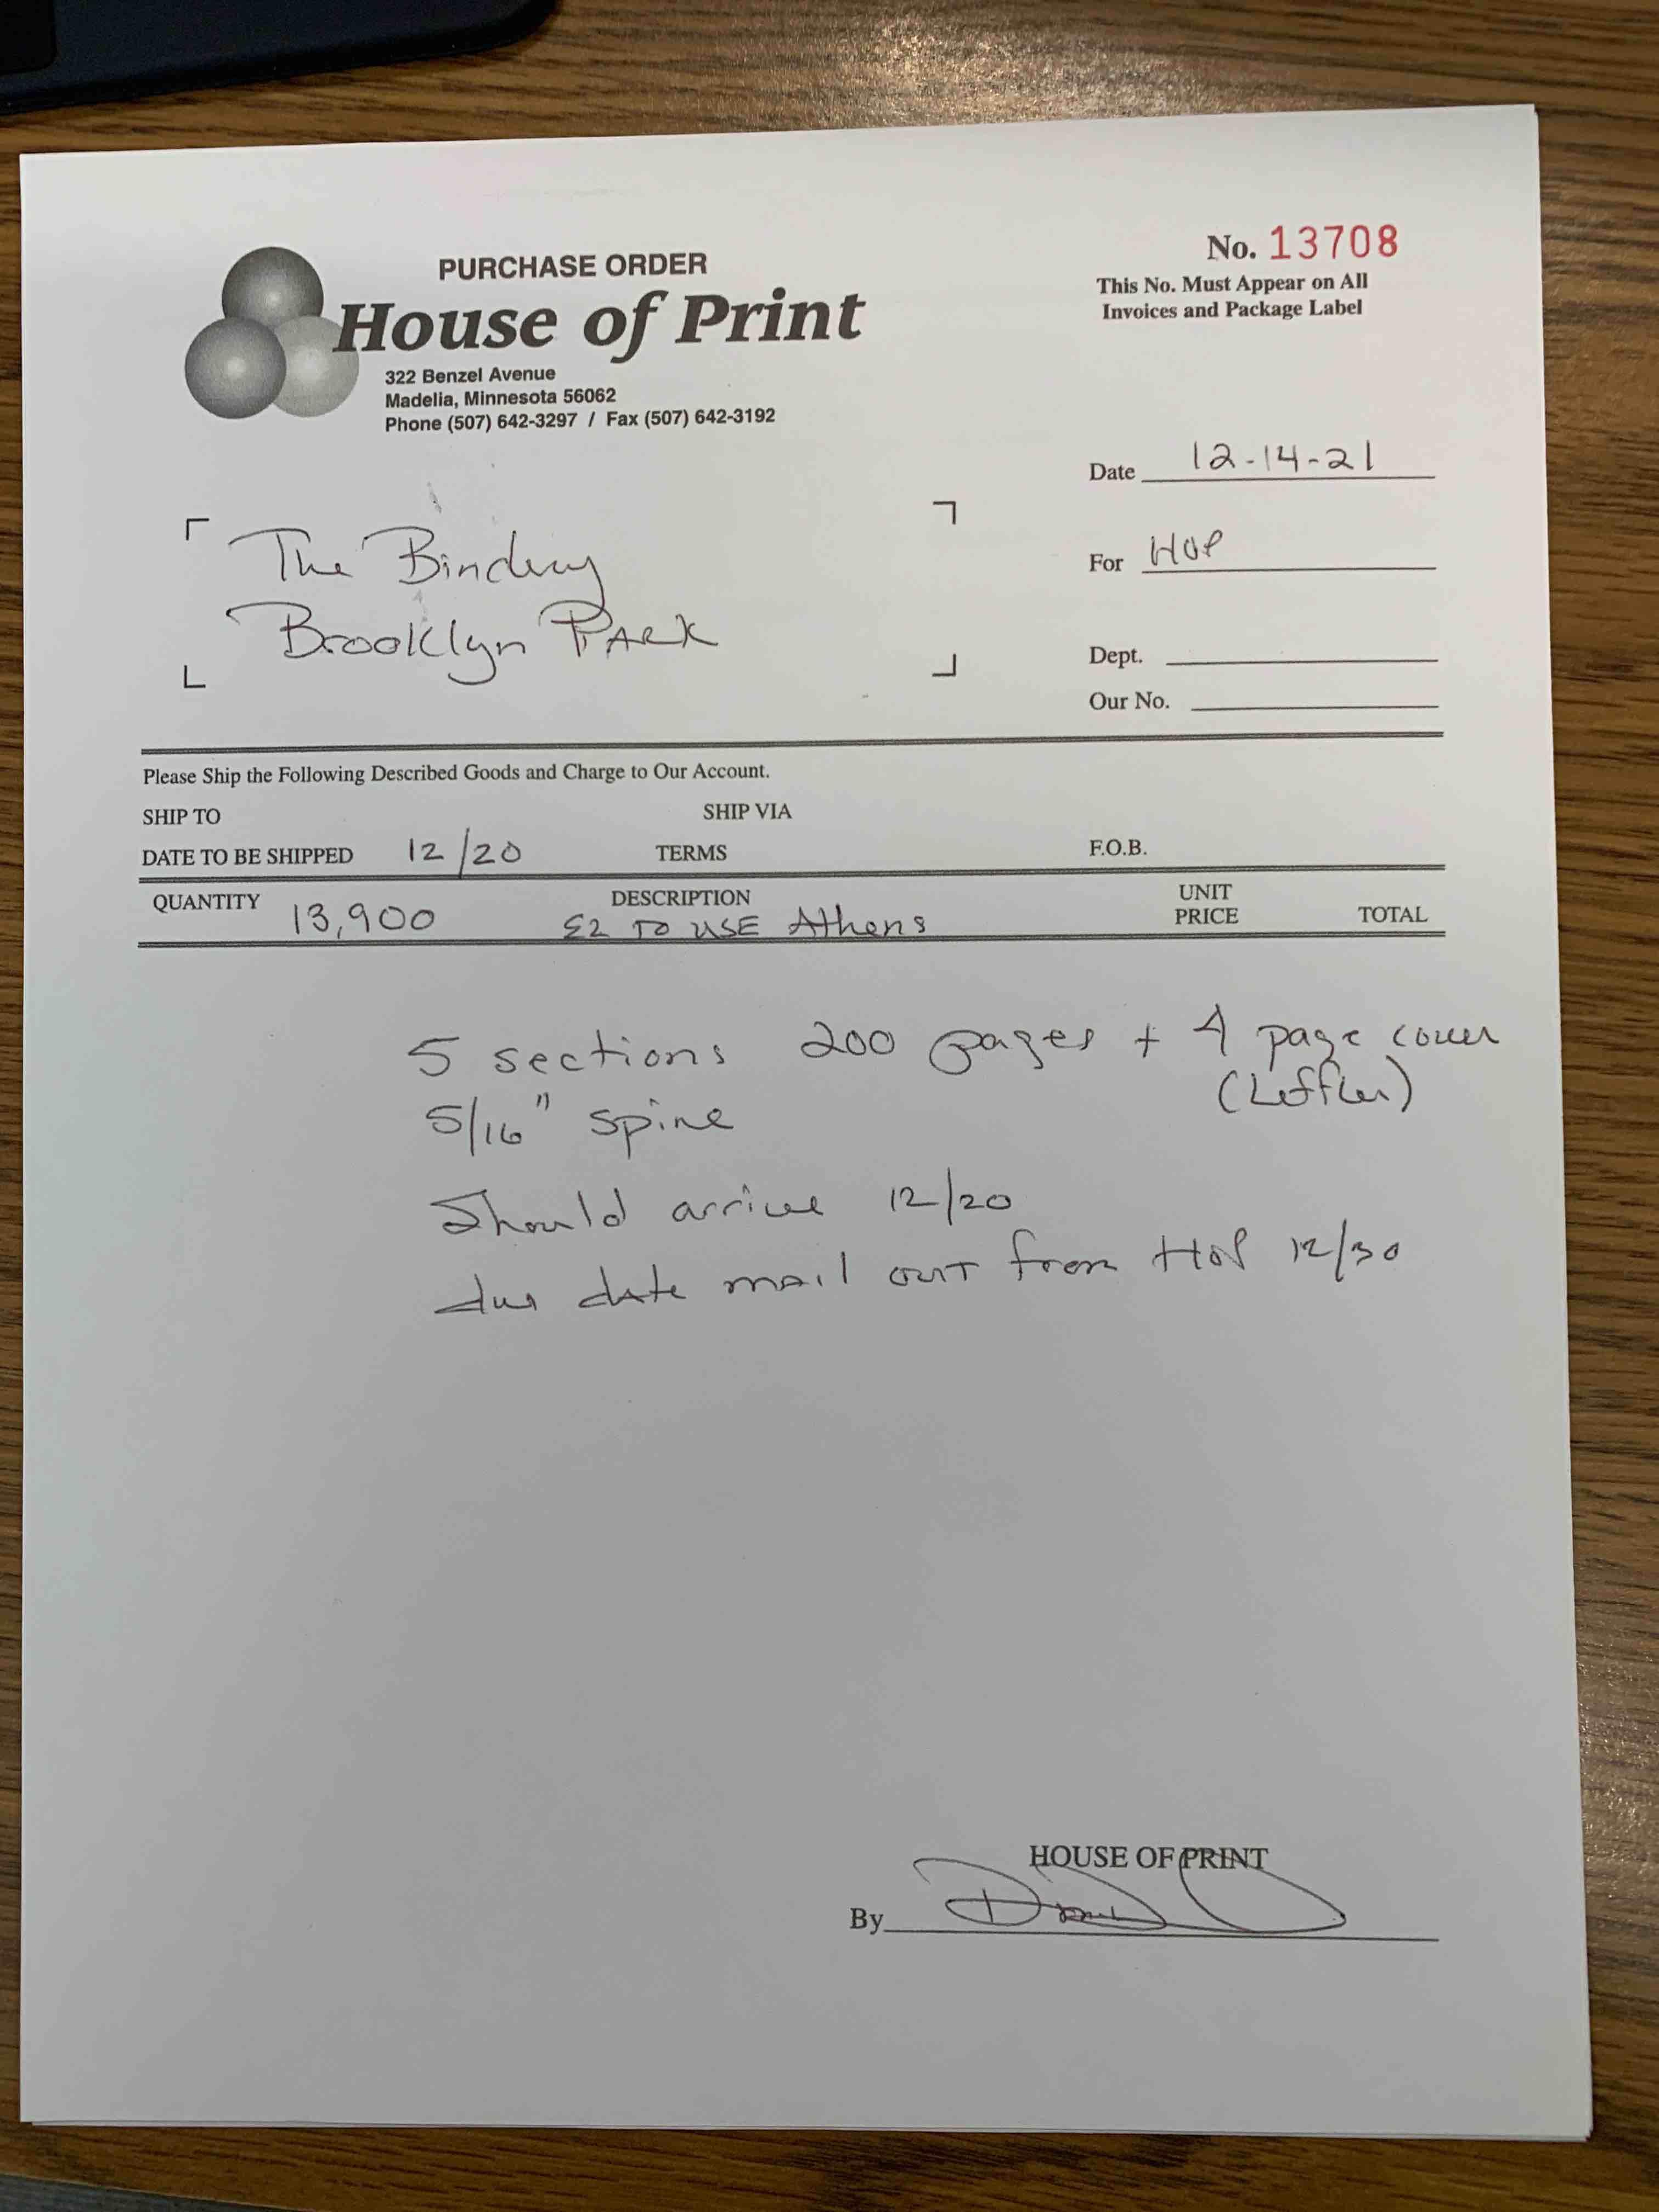 No. 13708
This No. Must Appear on All
Invoices and Package Label
PURCHASE ORDER
House of Print
322 Benzel Avenue
Madelia, Minnesota 56062
Phone (507) 642-3297 / Fax (507) 642-3192
Date 12-14-21
The Bindery
Brooklyn PARK
For HOP
Dept.
Our No.
Please Ship the Following Described Goods and Charge to Our Account.
SHIP TO SHIP VIA
DATE TO BE SHIPPED 12/20 TERMS F.O.B.
QUANTITY 13,900 DESCRIPTION UNIT PRICE TOTAL
EZ TO USE Athens
5 sections 200 pages + 4 page cover
(Loffler)
5/16" spine
Should arrive 12/20
due date mail out from HOP 12/30
HOUSE OF PRINT
By